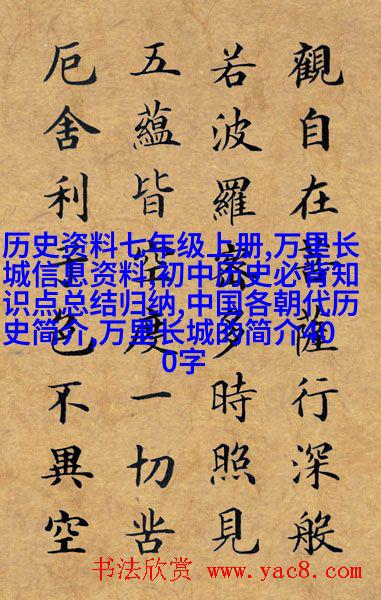 觀自在菩薩行深般
若波羅蜜多時照見
五蘊皆空度一切苦
厄舍利子色不異空
历史资料七年级上册,万里长
城信息资料,初中历史必背知
识点总结归纳,中国各朝代历
史简介,万里长城的简介40
0字
书法欣赏 www.yac8.com